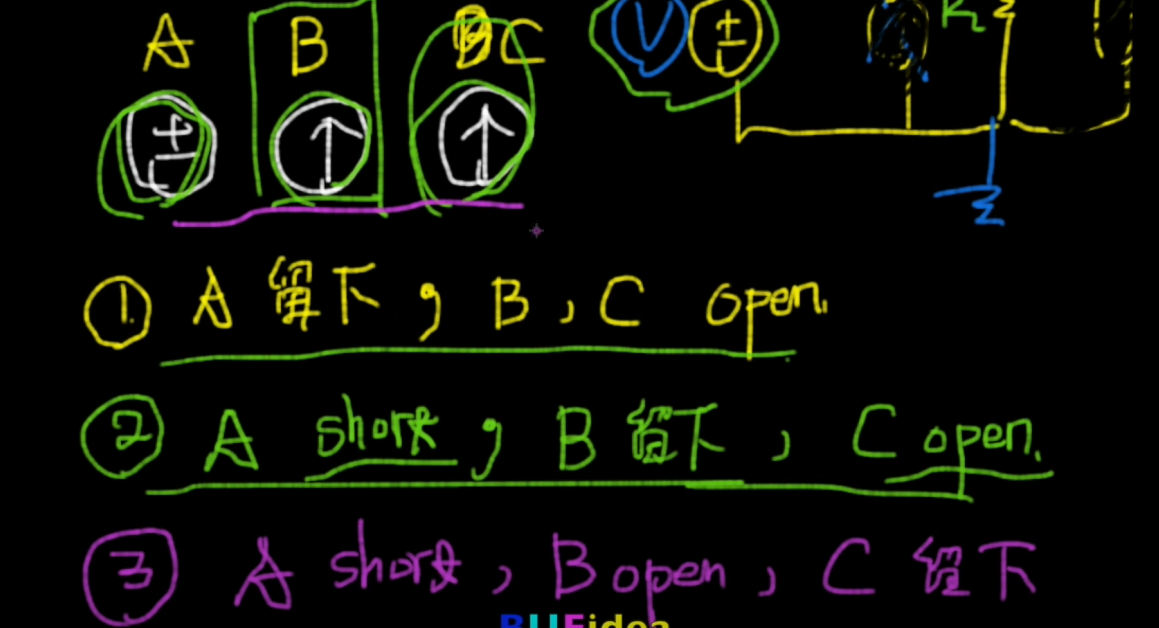 A B C V ±
± ↑ ↑
① A 留下, B, C open.
② A short, B 留下, C open.
③ A short, B open, C 留下
BUFidea